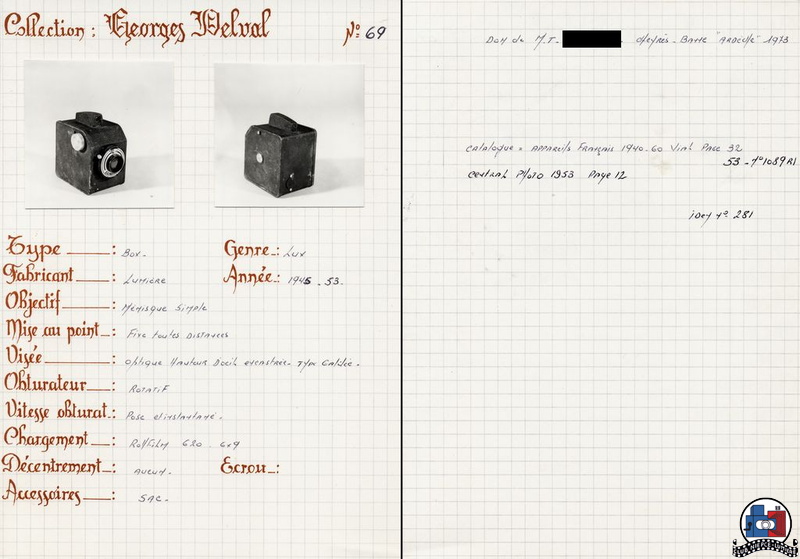 Collection : Georges Delval
No 69
Type : Box.
Genre : Lux
Fabricant : Lumière
Année : 1945 - 53.
Objectif : Ménisque Simple
Mise au point : Fixe toutes Distances
Visée : Optique Hauteur D'oeil encastrée. Type Galilée.
Obturateur : Rotatif
Vitesse obturat. : Pose et instantané.
Chargement : Rollfilm 620 6x9
Décentrement : Aucun.
Ecrou :
Accessoires : SAC.
Don de M.T. Meyrès - "Ardèche" 1973
Catalogue = Appareils Français 1940-60 Vial Page 32
Central Photo 1953 Page 12
Idey n° 281